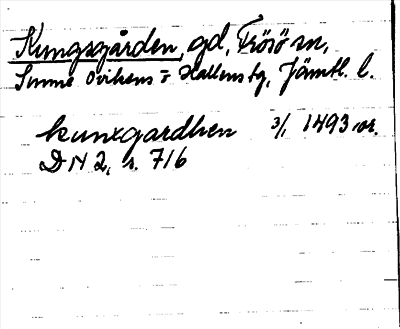 Kungsgården, gd, Frösö sn,
Sunne Ovikens o Hallens tg, Jämtl. l.
kunxgardhen 3/1 1493 or.
DN 2, s. 716